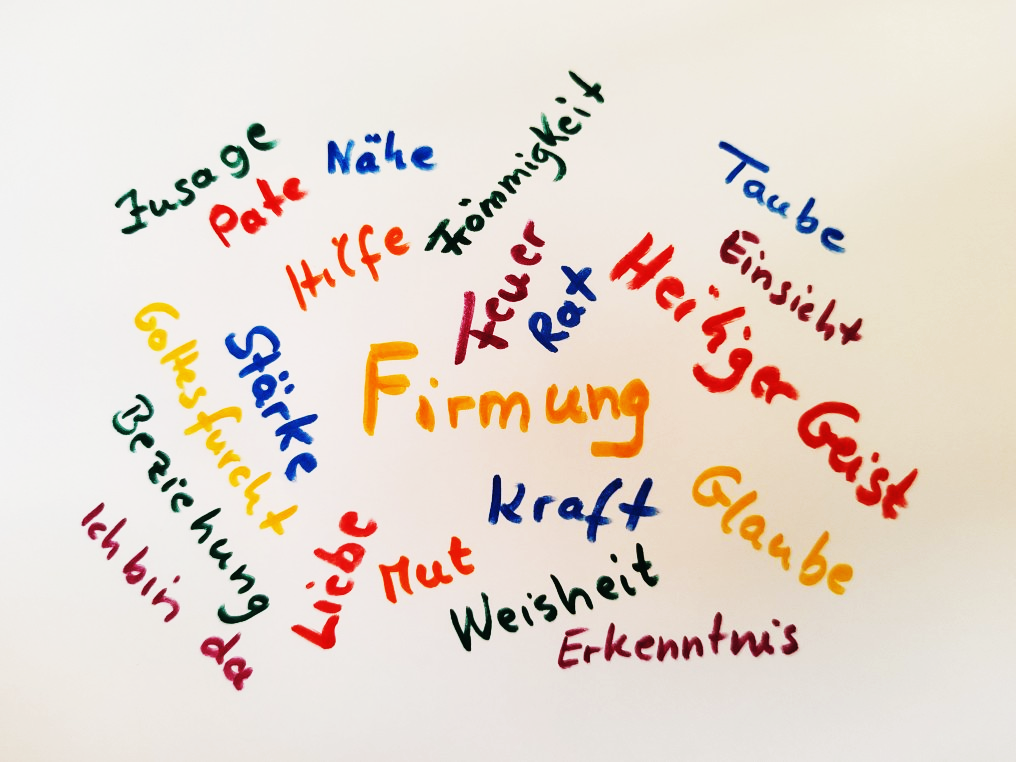 Zusage
Pate
Nähe
Frömmigkeit
Hilfe
Feuer
Rat
Taube
Einsicht
Heiliger Geist
Firmung
Gottesfurcht
Stärke
Beziehung
Ich bin da
Liebe
Mut
Kraft
Weisheit
Erkenntnis
Glaube